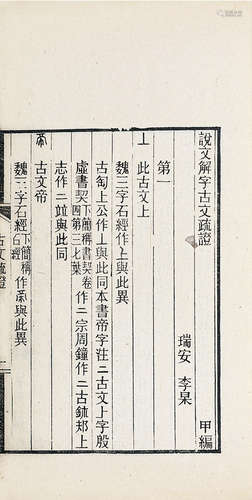 說文解字古文疏證
瑞安 李杲 甲編
第一
丄 此古文上
魏三字石經作上與此異
古匋上公作上與此同本書帝字注二古文上字殷
虛書契下簡稱書契卷四第三七葉作二宗周鐘作二古鉥郑上
志作二竝與此同
古文帝
魏三字石經下簡稱石經作與此異
古文疏證